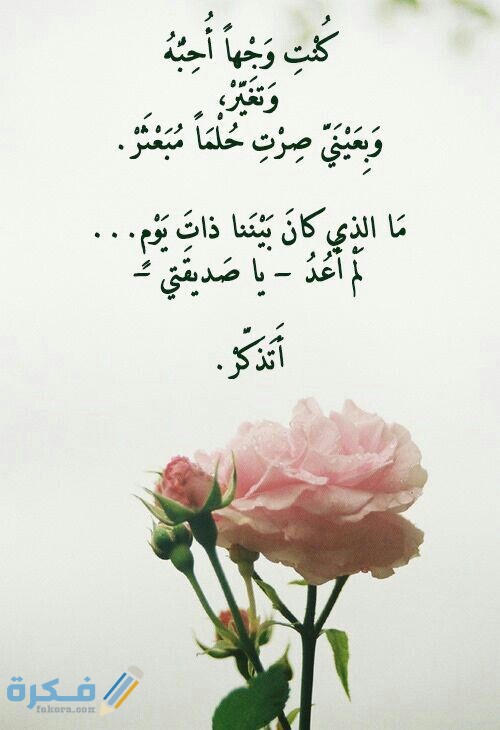 كُنْتِ وَجْهاً أُحِبُّهُ
وَتَغَيَّرْ،
وَبِعَيْنَيَّ صِرْتِ حُلْمَاً مُبَعْثَرْ.
مَا الذِي كانَ بَيْنَنا ذاتَ يَوْمٍ...
لَمْ أَعُدْ – يا صَديقَتي –
أَتَذَكَّرْ.
فكرة
fakera.com